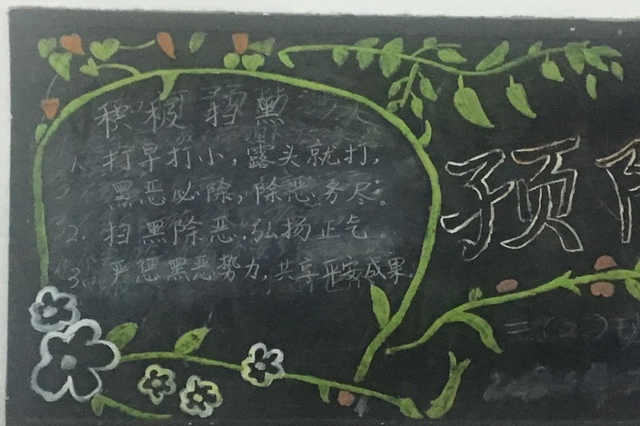 积极扫黑
1. 打早打小，露头就打，
黑恶必除，除恶务尽。
2. 扫黑除恶，弘扬正气
3. 严惩黑恶势力，共享平安成果。
预